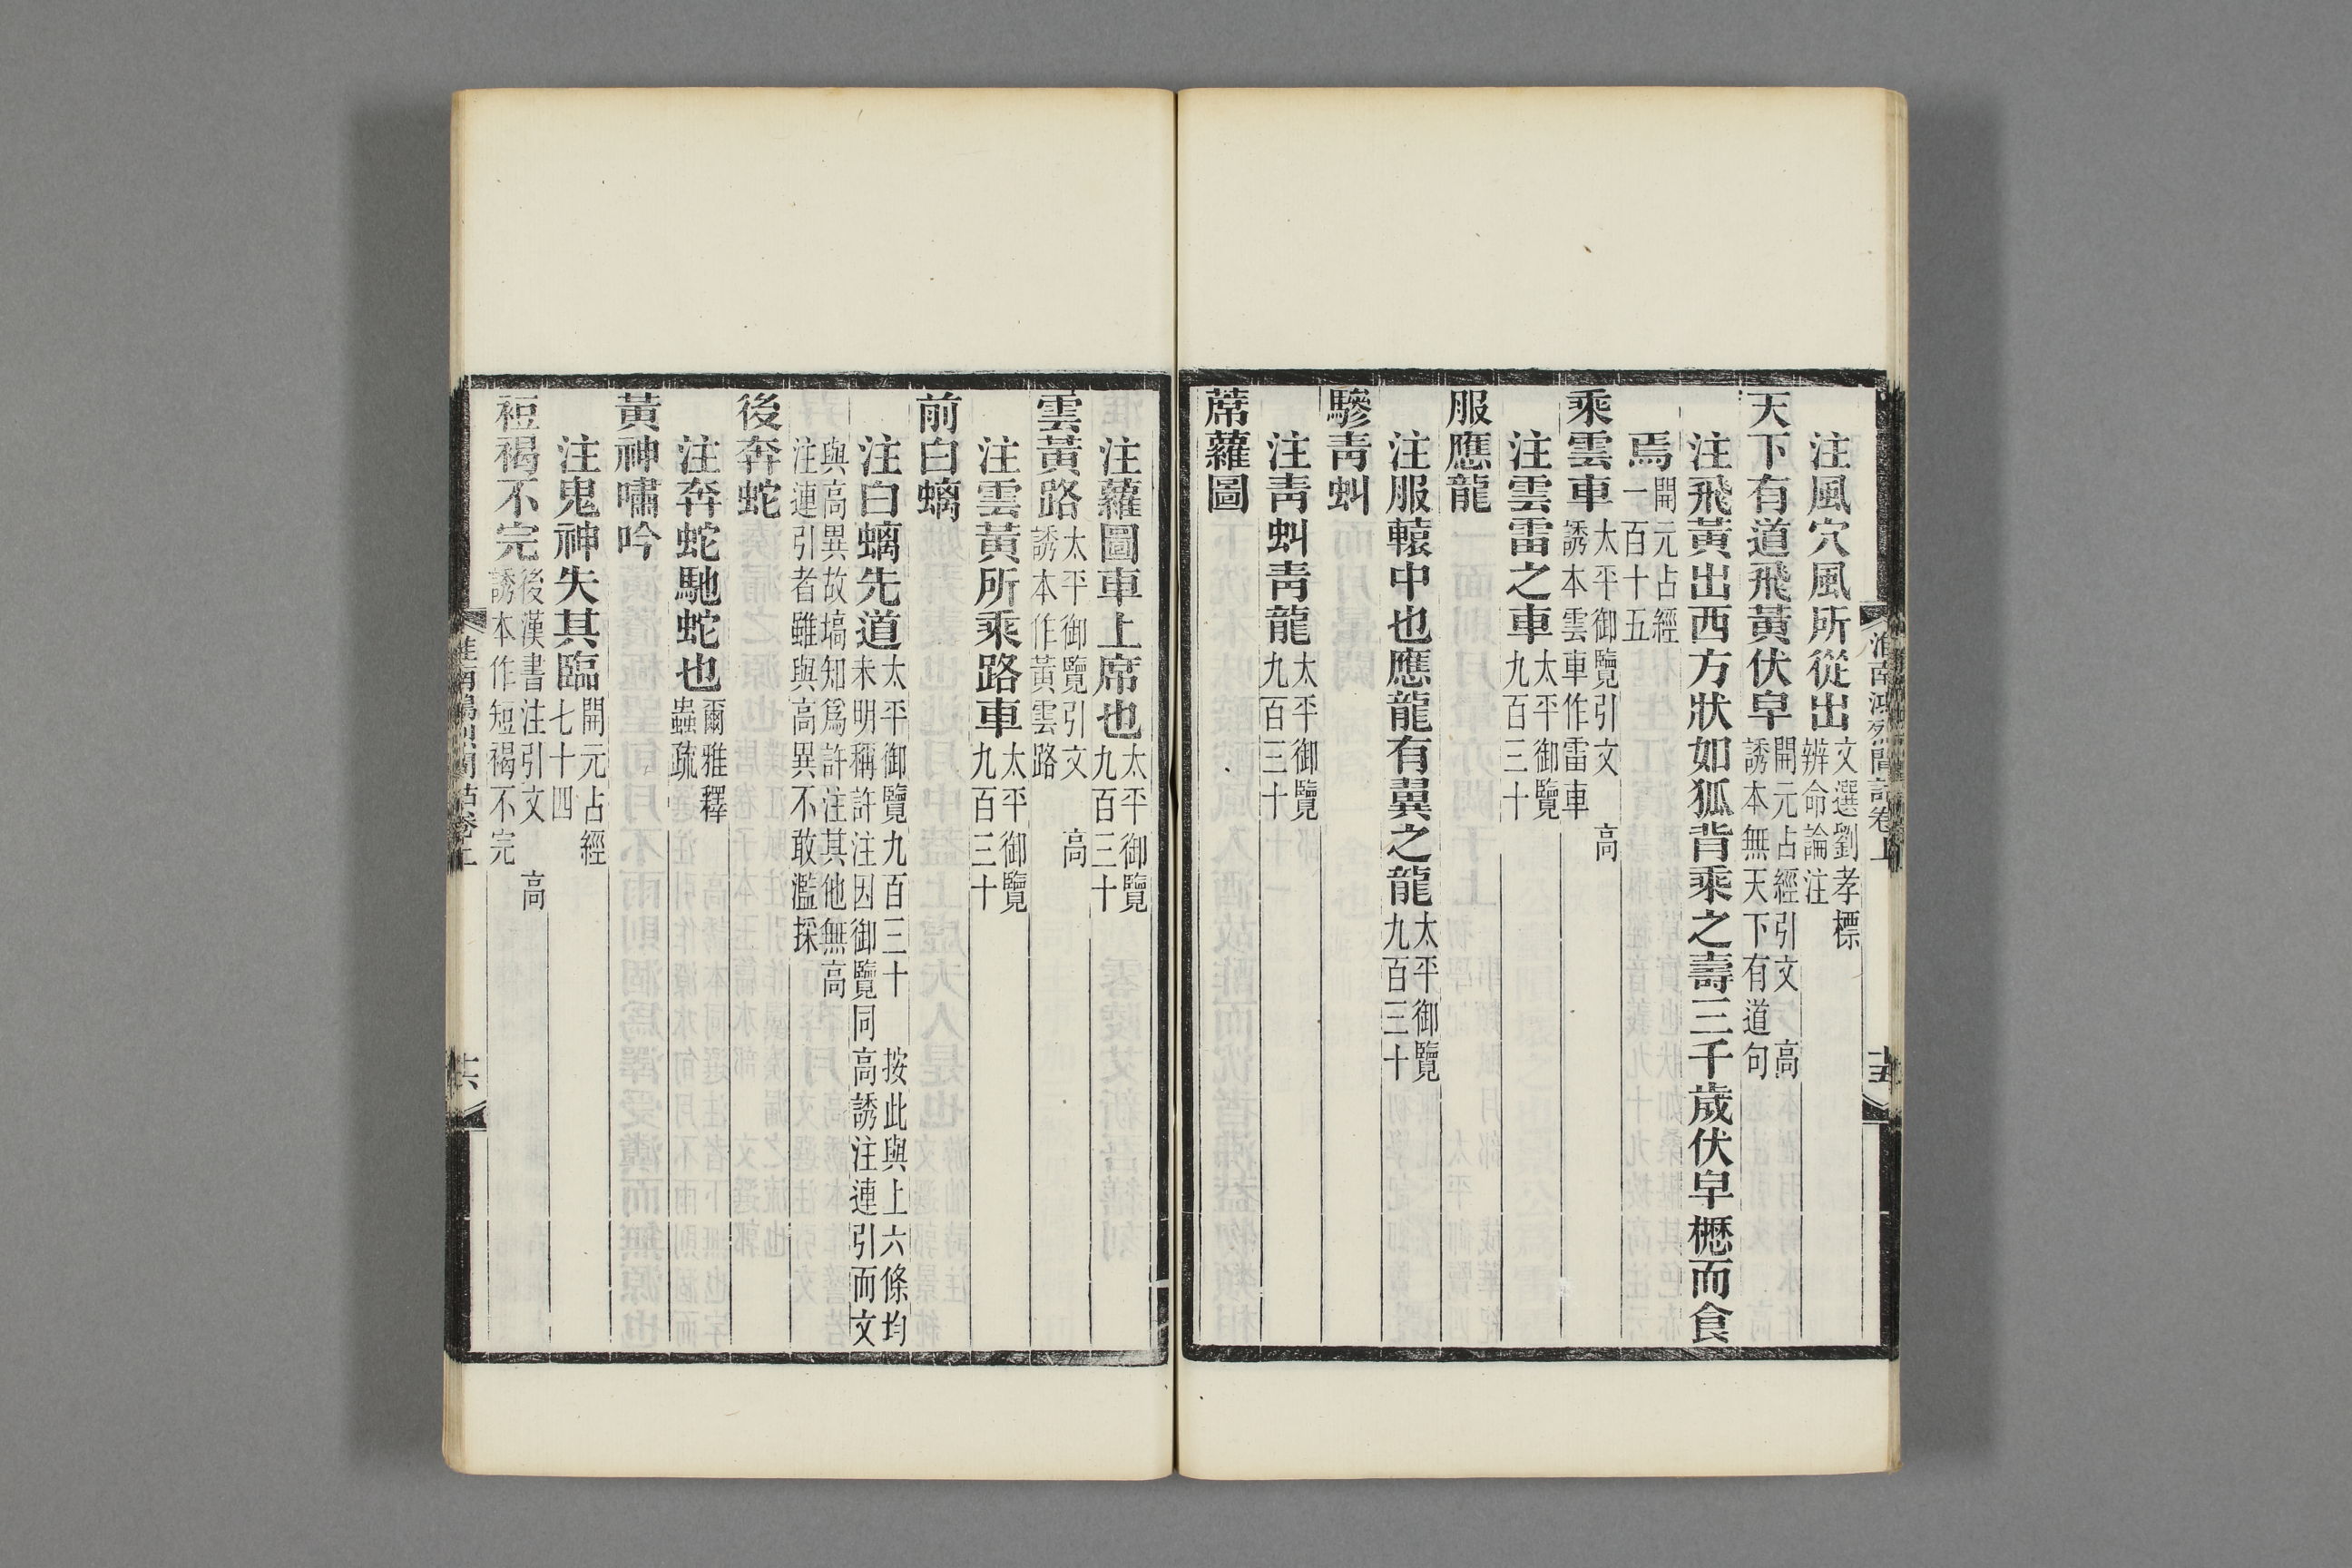 淮南鴻烈閒詁卷上
十五
注風穴風所從出文選劉孝標辨命論注
天下有道飛黃伏皁開元占經引文 高誘本無天下有道句
注飛黃出西方狀如狐背乘之壽三千歲伏皁櫪而食
焉開元占經一百十五
乘雲車太平御覽引文 高誘本雲車作雷車
注雲雷之車太平御覽九百三十
服應龍
注服轅中也應龍有翼之龍太平御覽九百三十
驂靑虯
注靑虯靑龍太平御覽九百三十
蓆蘿圖
注蘿圖車上席也太平御覽九百三十
雲黃路太平御覽引文 高誘本作黃雲路
注雲黃所乘路車太平御覽九百三十
前白螭
注白螭先道太平御覽九百三十 按此與上六條均未明稱許注因御覽同高誘注連引而文
與高異故塙知爲許注其他無高注連引者雖與高異不敢濫採
後奔蛇
注奔蛇馳蛇也爾雅釋蟲疏
黃神嘯吟
注鬼神失其臨開元占經七十四
裋褐不完後漢書注引文 高誘本作短褐不完
淮南鴻烈閒詁卷上
十六